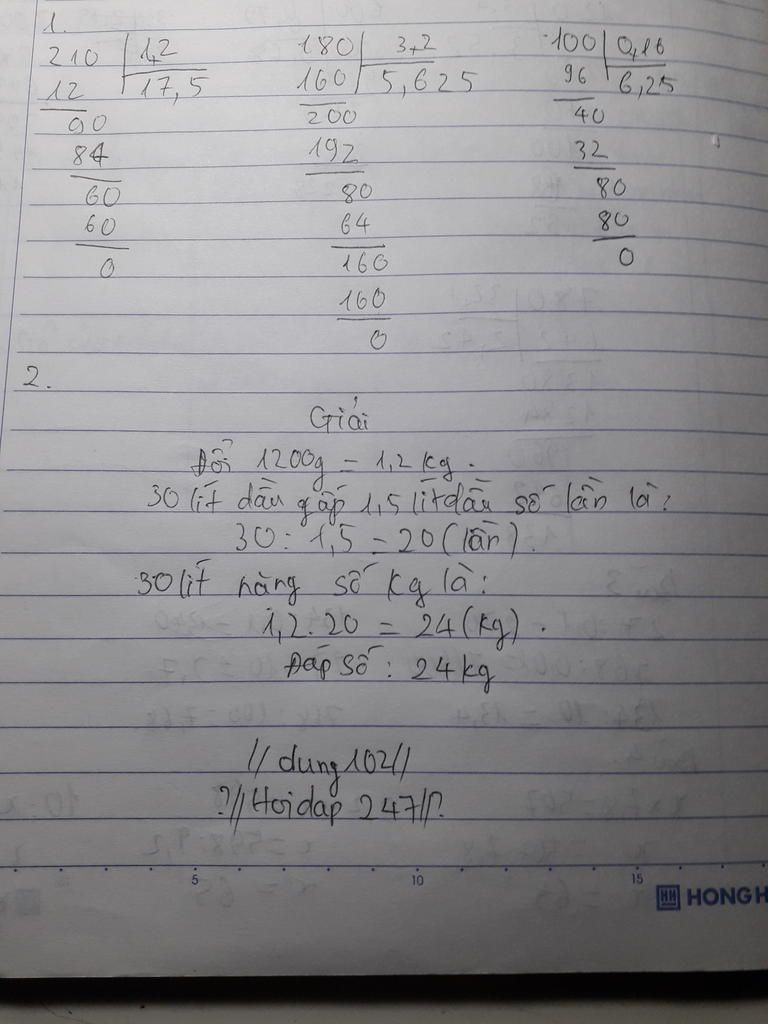 1.
210 | 1,2 180 | 3,2 100 | 0,16
12 17,5 160 5,625 96 6,25
90 200 40
84 192 32
60 80 80
60 64 80
0 160 0
160
0
2.
Giải
Đổi 1200g = 1,2 kg.
30 lít dầu gấp 1,5 lít dầu số lần là:
30 : 1,5 = 20 (lần).
30 lít nặng số kg là:
1,2 . 20 = 24 (kg).
Đáp số : 24 kg
// dung102//
?// Hoidap 247//?
5 10 15
HONG H